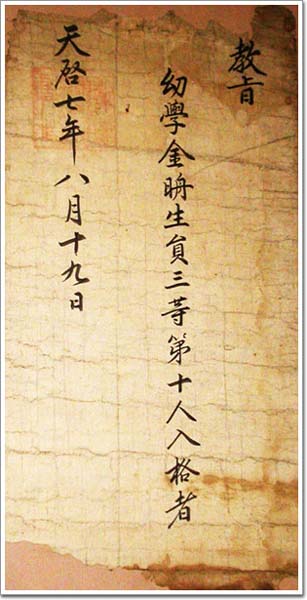 教旨
幼學金暶生員三等第十人入格者
天啓七年八月十九日